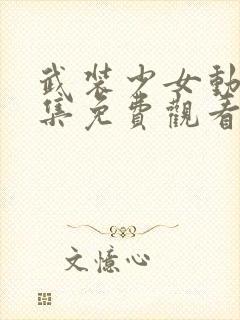 武裝少女動
集免費觀看
文憶心